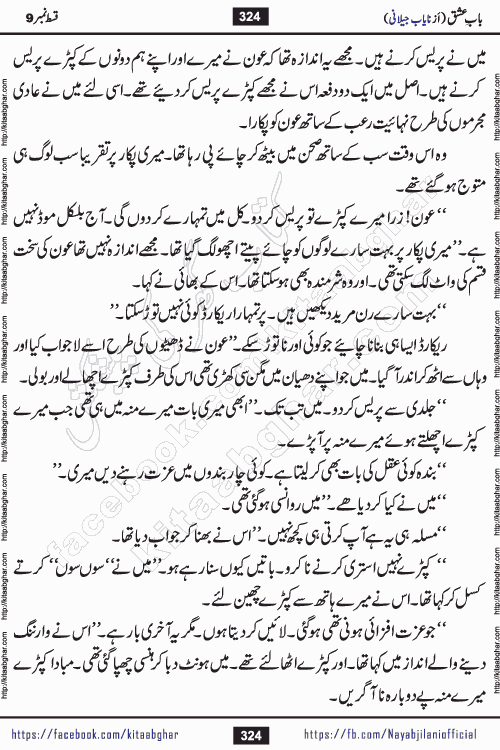 باب عشق (از نایاب جیلانی)
324
قسط نمبر 9
میں نے پریس کرنے ہیں۔ مجھے یہ اندازہ تھا کہ عون نے میرے اور اپنے ہم دونوں کے کپڑے پریس
کرنے ہیں۔ اصل میں ایک دو دفعہ اس نے مجھے کپڑے پریس کر دیئے تھے۔ اسی لئے میں نے عادی
مجرموں کی طرح نہایت رعب کے ساتھ عون کو پکارا۔
وہ اس وقت سب کے ساتھ صحن میں بیٹھ کر چائے پی رہا تھا۔ میری پکار پر تقریبا سب لوگ ہی
متوج ہو گئے تھے۔
‘‘عون! زرا میرے کپڑے تو پریس کر دو۔ کل میں تمہارے کر دوں گی۔ آج بلکل موڈ نہیں
ہے۔’’ میری پکار پر بہت سارے لوگوں کو چائے پیتے اچھو لگ گیا تھا۔ مجھے اندازہ نہیں تھا عون کی سخت
قسم کی واٹ لگ سکتی تھی۔ اور وہ شرمندہ بھی ہو سکتا تھا۔ اس کے بھائی نے کہا۔
‘‘بہت سارے رن مرید دیکھیں ہیں۔ پر تمہارا ریکارڈ کوئی نہیں توڑ سکتا۔’’
ریکارڈ ایسا ہی بنانا چاہئیے جو کوئی اور نا توڑ سکے۔’’ عون نے ڈھیٹوں کی طرح اسے لاجواب کیا اور
وہاں سے اٹھ کر اندر آ گیا۔ میں جو اپنے دھیان میں مگن سی کھڑی تھی اس کی طرف کپڑے اچھالے اور بولی۔
‘‘جلدی سے پریس کر دو۔ میں تب تک۔’’ ابھی میری بات میرے منہ میں ہی تھی جب میرے
کپڑے اچھلتے ہوئے میرے منہ پر آ پڑے۔
‘‘بندہ کوئی عقل کی بات بھی کر لیتا ہے۔ کوئی چار بندوں میں عزت رہنے دیں میری۔’’
‘‘میں نے کیا کر دیا ھے۔’’ میں روانسی ہو گئی تھی۔
‘‘مسلہ ہی یہ ہے آپ کرتی ہی کچھ نہیں۔’’ اس نے بھنا کر جواب دیا تھا۔
‘‘کپڑے نہیں استری کرنے نا کرو۔ باتیں کیوں سنا رہے ہو۔’’ میں نے ‘‘سوں سوں’’ کرتے
کسل کر کہا تھا۔ اس نے میرے ہاتھ سے کپڑے چھین لئے۔
‘‘جو عزت افزائی ہونی تھی ہو گئی۔ لائیں کر دیتا ہوں۔ مگر یہ آخری بار ہے۔’’ اس نے وارننگ
دینے والے انداز میں کہا تھا۔ اور کپڑے اٹھا لئے تھے۔ میں ہونٹ دبا کر ہنسی چھپا گئی تھی۔ مبادا کپڑے
میرے منہ پے دوبارہ نا آ گریں۔
http://kitaabghar.com
facebook.com/kitaabghar
https://facebook.com/kitaabghar
324
https://fb.com/Nayabjilaniofficial